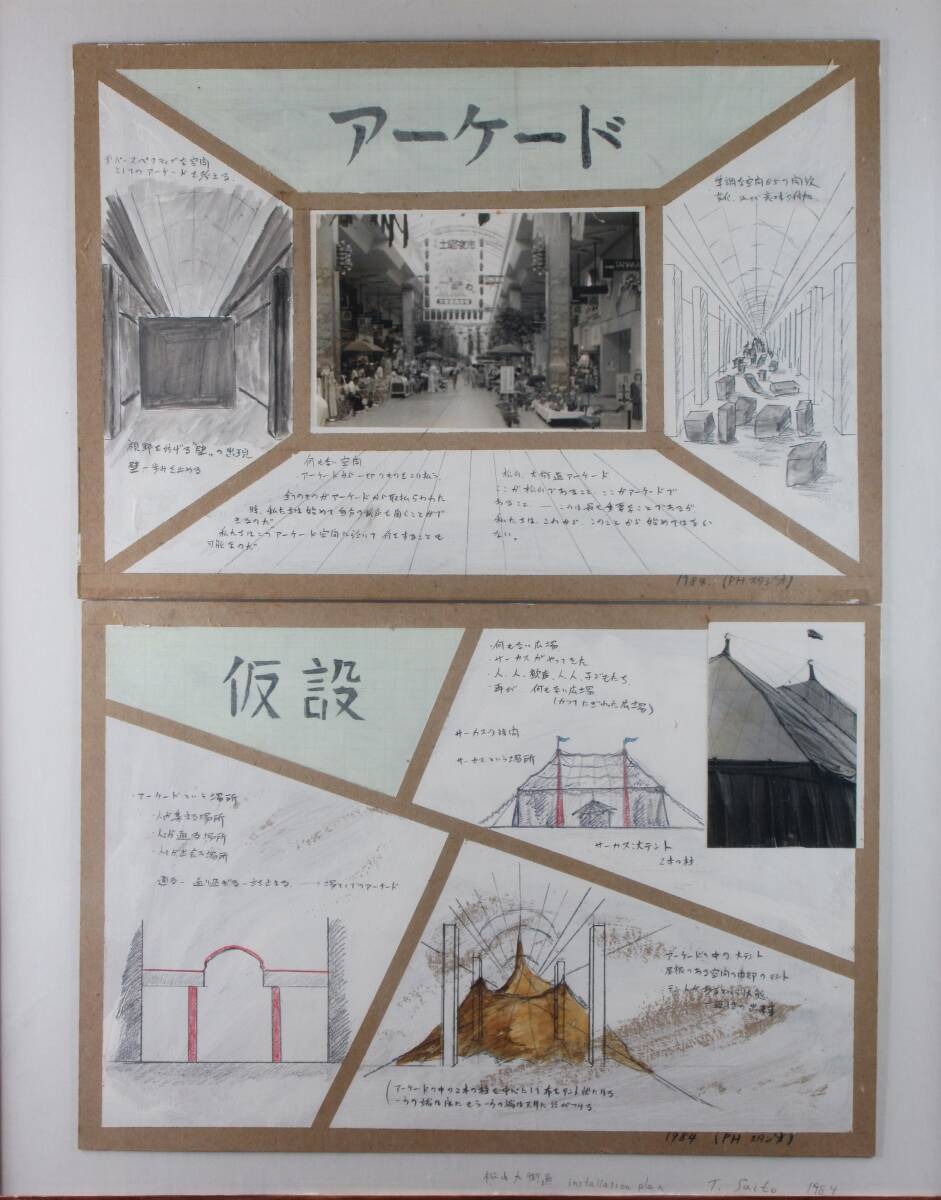 アーケード
パースペクティブな空間
としてのアーケードを考える。
単調な空間からの開放
土曜夜市
視野を妨げる"壁"の出現
壁－歩みを止める
何もない空間
アーケードから一切のものをとり払う。
全てのものがアーケードから取払らわれた
時、私たちは始めて自分の視点を向くことがで
きるのだ
私たちはこのアーケード空間に於いて 何をすることも
可能なのだ
松山、大街道アーケード
ここが松山であること、ここがアーケードで
あること、――このは最も重要なことであるが
私たちは、これから、このことから始めてはならく
ない。
1984 (PHスタジオ)
仮設
・何もない広場
・サーカスがやってきた
・人、人、歓声、人、人、子どもたち、
・再び 何もない広場
(かつてにぎわった広場)
サーカスの時間
サーカスという場所
サーカス:大テント
2本の柱
・アーケードという場所
・人が集まる場所
・人が通る場所
・人が出会う場所
通る－通り過ぎる－立ち止まる
場としてのアーケード
アーケードの中の大テント
・屋根のある空間の内部のテント
アーケードの中の2本の柱を中心という布をテント状にはる
一方の端は床にもう一方の端は天井に結びつける
1984 (PHスタジオ)
松山大街道 installation plan T. Saito 1984